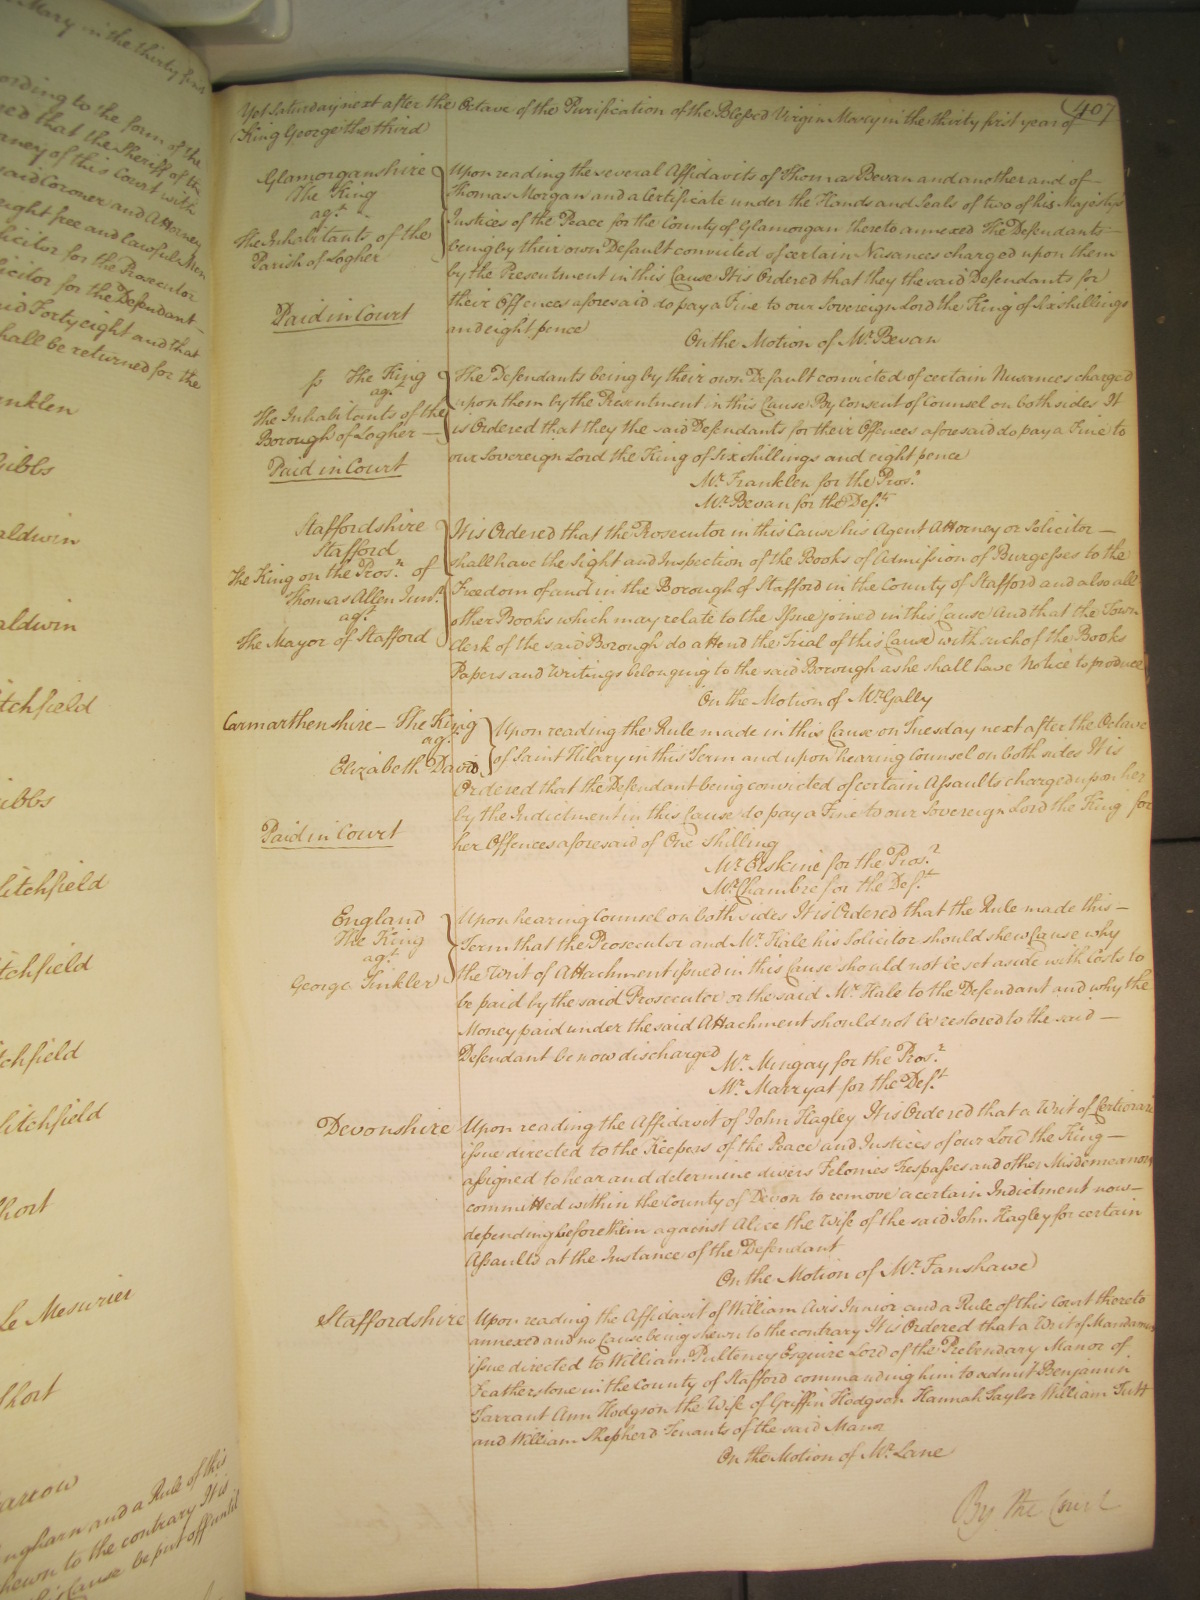 Mary in the thirty first
ording to the form of the
red that the Sheriff of the
orney of this Court with
said Coroner and Attorney
eight free and lawful Men
licitor for the Prosecutor
licitor for the Defendant —
aid Forty eight and that
hall be returned for the
nklen
Gibbs
aldwin
aldwin
itchfield
ibbs
Litchfield
tchfield
tchfield
Litchfield
hort
Le Mesurier
Short
arrow
ngham and a Rule of this
hewn to the contrary It is
Cause be put off until
407
Yet Saturday next after the Octave of the Purification of the Blessed Virgin Mary in the thirty first year of
King George the third
Glamorganshire
The King
agt.
The Inhabitants of the
Parish of Logher
Paid in Court
Upon reading the several Affidavits of Thomas Bevan and another and of —
Thomas Morgan and a Certificate under the Hands and Seals of two of his Majestys
Justices of the Peace for the County of Glamorgan thereto annexed The Defendants —
being by their own Default convicted of certain Nusances charged upon them
by the Presentment in this Cause It is Ordered that they the said Defendants for
their Offences aforesaid do pay a Fine to our Sovereign Lord the King of Six shillings
and eight pence
On the Motion of Mr. Bevan
fs The King
agt.
The Inhabitants of the
Borough of Logher —
Paid in Court
The Defendants being by their own Default convicted of certain Nusances charged
upon them by the Presentment in this Cause By Consent of Counsel on both sides It
is Ordered that they the said Defendants for their Offences aforesaid do pay a Fine to
our Sovereign Lord the King of Six shillings and eight pence
Mr. Franklen for the Prosr.
Mr. Bevan for the Deft.
Staffordshire
Stafford
The King on the Prosn. of
Thomas Allen Junr.
agt.
The Mayor of Stafford
It is Ordered that the Prosecutor in this Cause his Agent Attorney or Solicitor —
shall have the Sight and Inspection of the Books of Admission of Burgesses to the
Freedom of and in the Borough of Stafford in the County of Stafford and also all
other Books which may relate to the Issue joined in this Cause And that the Town
Clerk of the said Borough do attend the Trial of this Cause with such of the Books
Papers and Writings belonging to the said Borough as he shall have Notice to produce
On the Motion of Mr. Gally
Carmarthenshire — The King
agt.
Elizabeth David
Paid in Court
Upon reading the Rule made in this Cause on Tuesday next after the Octave
of Saint Hilary in this Term and upon hearing Counsel on both sides It is
Ordered that the Defendant being convicted of certain Assaults charged upon her
by the Indictment in this Cause do pay a Fine to our Sovereign Lord the King for
her Offences aforesaid of One shilling
Mr. Erskine for the Prosr.
Mr. Chambre for the Deft.
England
The King
agt.
George Tinkler
Upon hearing Counsel on both sides It is Ordered that the Rule made this —
Term that the Prosecutor and Mr. Hale his Solicitor should shew Cause why
the Writ of Attachment issued in this Cause should not be set aside with Costs to
be paid by the said Prosecutor or the said Mr. Hale to the Defendant and why the
Money paid under the said Attachment should not be restored to the said —
Defendant be now discharged
Mr. Mingay for the Prosr.
Mr. Marryat for the Deft.
Devonshire
Upon reading the Affidavit of John Hagley It is Ordered that a Writ of Certiorari
issue directed to the Keepers of the Peace and Justices of our Lord the King —
assigned to hear and determine divers Felonies Trespasses and other Misdemeanors
committed within the County of Devon to remove a certain Indictment now —
depending before them against Alice the Wife of the said John Hagley for certain
Assaults at the Instance of the Defendant
On the Motion of Mr. Fanshawe
Staffordshire
Upon reading the Affidavit of William Avis Junior and a Rule of this Court thereto
annexed and no Cause being shewn to the contrary It is Ordered that a Writ of Mandamus
issue directed to William Pulteney Esquire Lord of the Prebendary Manor of
Featherstone in the County of Stafford commanding him to admit Benjamin
Tarrant Ann Hodgson the Wife of Griffin Hodgson Hannah Taylor William Tutt
and William Shepherd Tenants of the said Manor
On the Motion of Mr. Lane
By the Court